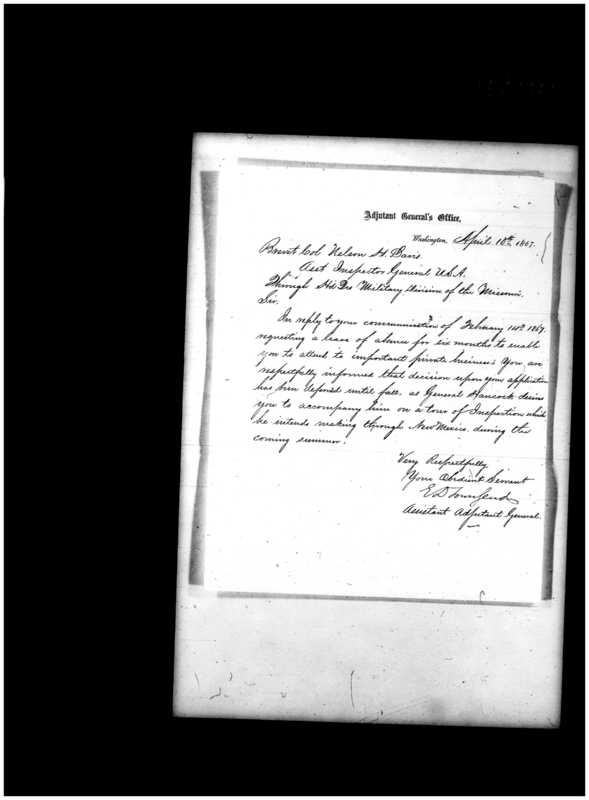 Adjutant General's Office,
Washington, April 18th 1867.
Brevt Col Nelson H. Davis
Asst Inspector General U.S.A.
Through Hd Qrs Military Division of the Missouri.
Sir.
In reply to your communication of February 14th 1867,
requesting a leave of absence for six months to enable
you to attend to important private business: You are
respectfully informed that decision upon your application
has been deferred until fall, as General Hancock desires
you to accompany him on a tour of Inspection which
he intends making through New Mexico, during the
coming summer.
Very Respectfully
Your Obedient Servant
E D Townsend
Assistant Adjutant General.